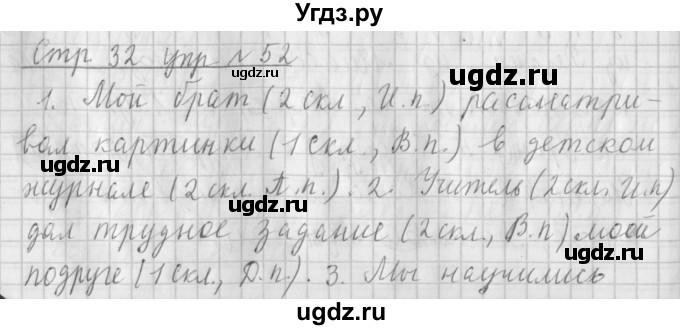 Угдз.ру
Стр 32 упр № 52
1. Мой брат (2 скл., И.п.) рассматри-
вал картинки (1 скл., В.п.) в детском
журнале (2 скл. П.п.). 2. Учитель (2 скл. И.п)
дал трудное задание (2 скл., В.п) моей
подруге (1 скл., Д.п.). 3. Мы научились
ugdz.ru ugdz.ru ugdz.ru
ugdz.ru ugdz.ru ugdz.ru
ugdz.ru ugdz.ru